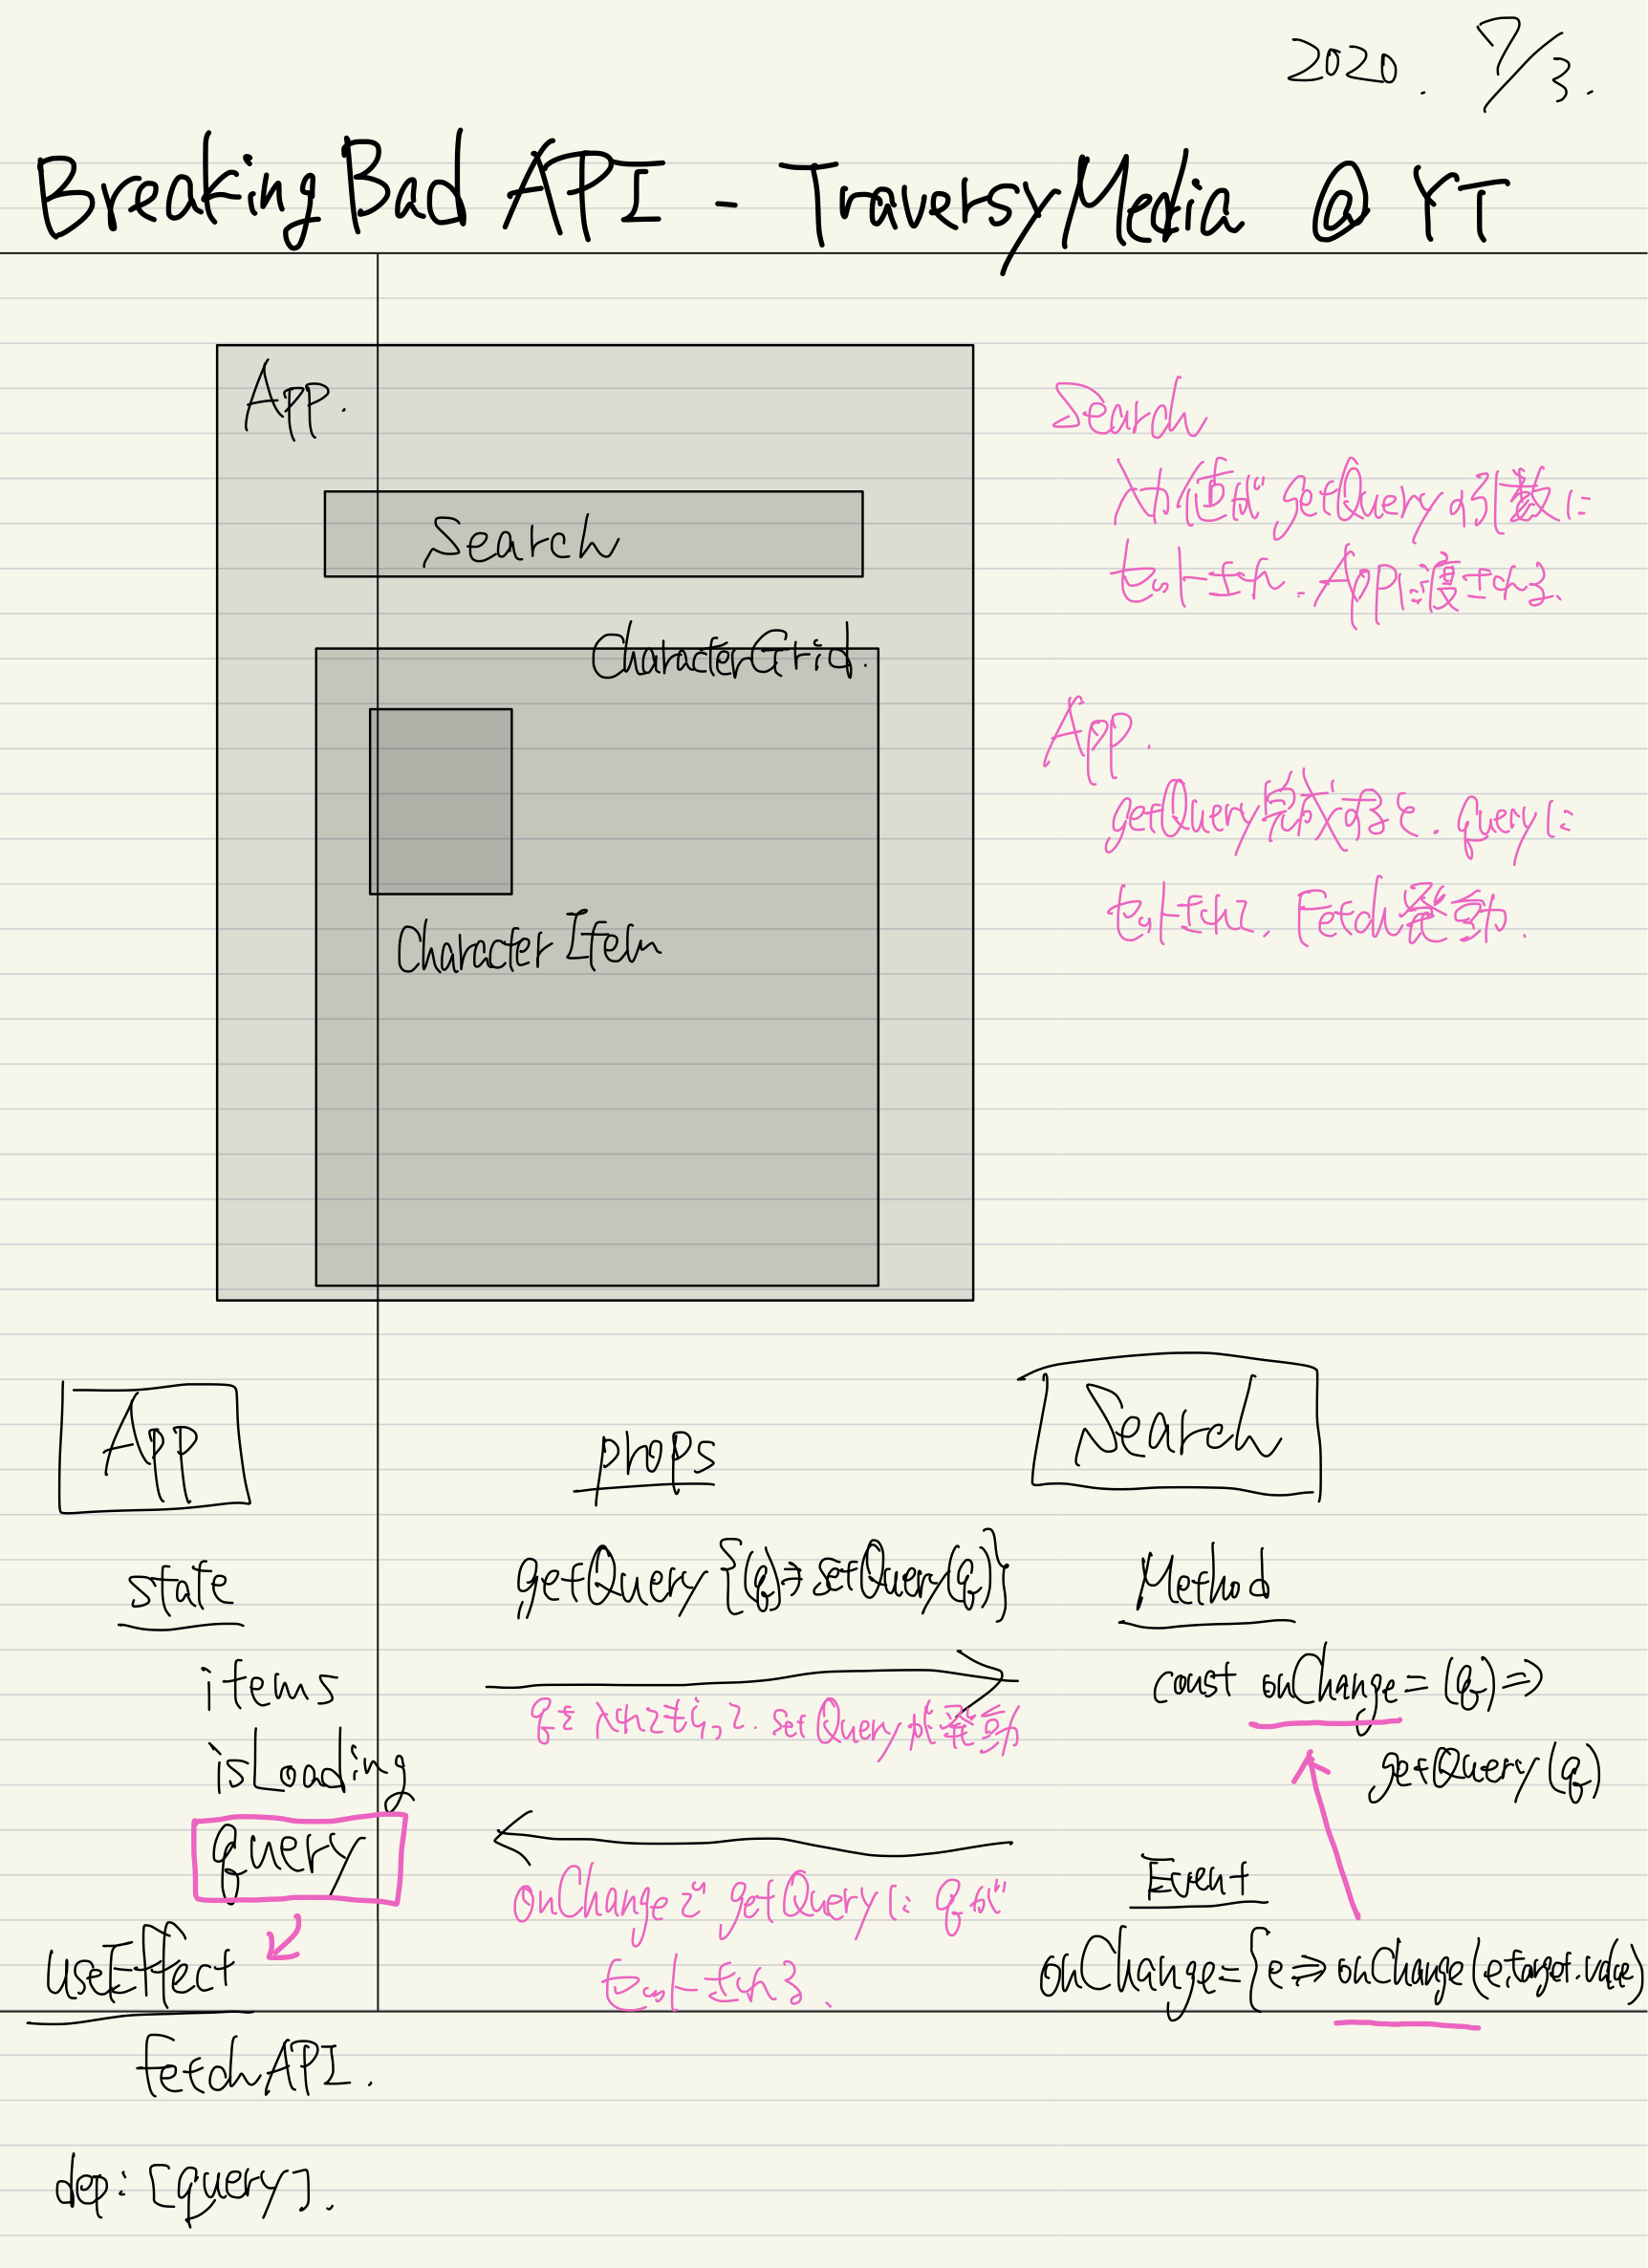 2020. 7/3.
Breaking Bad API - TraversyMedia @ YT
App.
Search
CharacterGrid.
CharacterItem
Search
入力値が getQueryの引数に
セットされ、Appに渡される。
App.
getQuery完成すると、queryに
セットされて、Fetch発動.
App
state
items
isLoading
query
useEffect
fetchAPI.
dep: [query].
props
getQuery{(q)⇒setQuery(q)}
qを入れてもらって、setQueryが発動
onChangeで getQueryに qが
セットされる、
Search
Method
const onChange = (q) =>
getQuery(q)
Event
onChange={e⇒onChange(e.target.value)